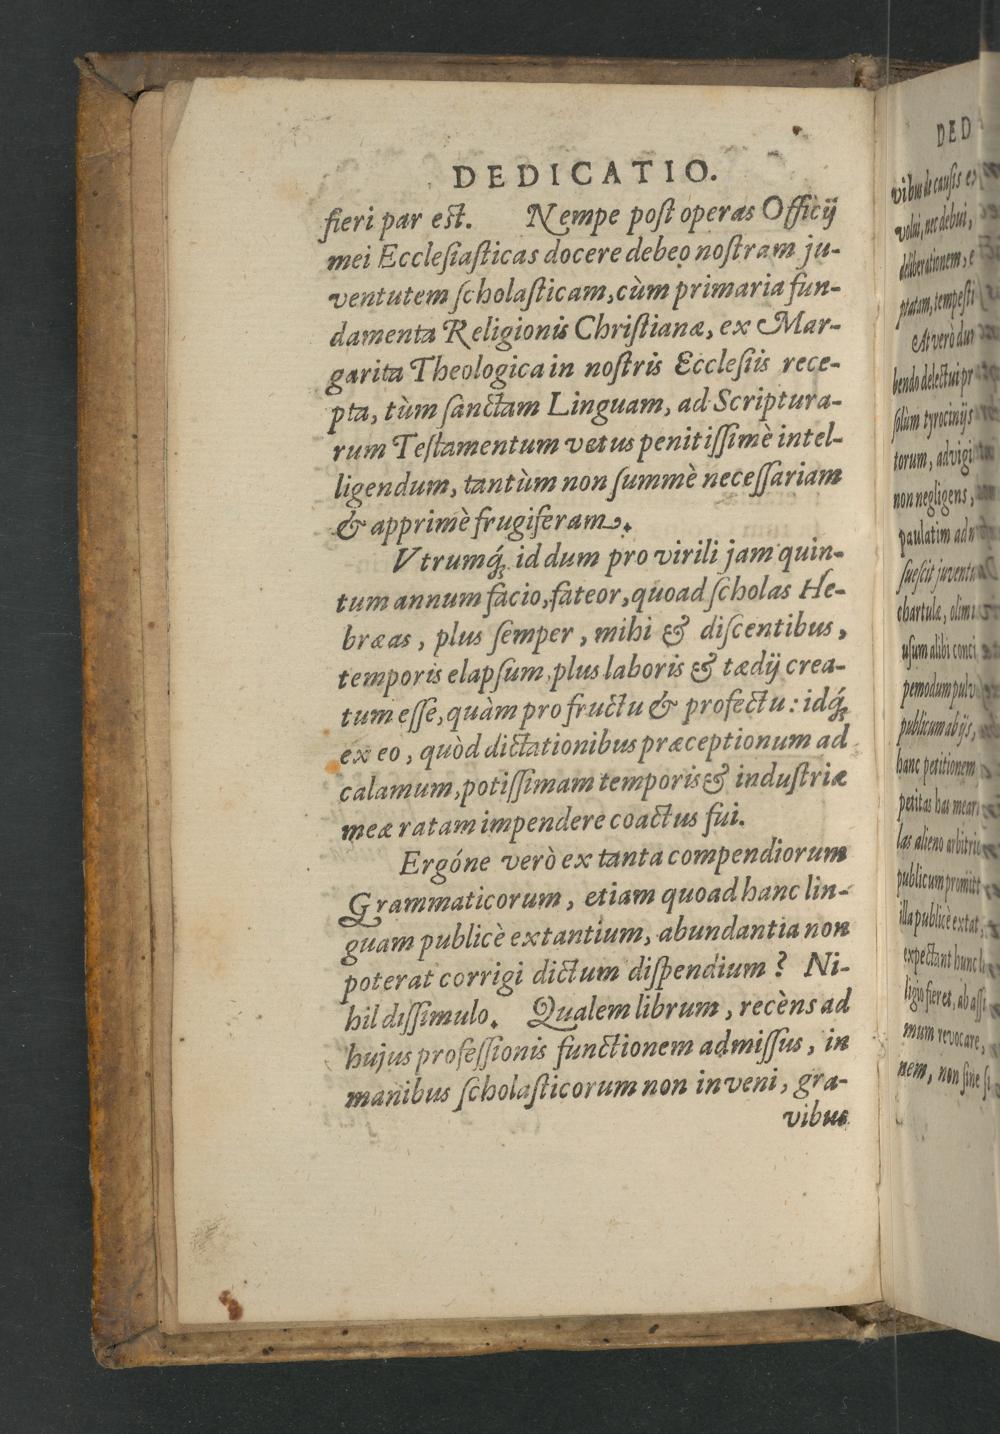 DEDICATIO.
fieri par est. Nempe poſt operas Officij
mei Eccleſiaſticas docere debeo noſtram ju-
ventutem ſcholaſticam, cùm primaria fun-
damenta Religionis Chriſtianæ, ex Mar-
garita Theologica in noſtris Eccleſiis rece-
pta, tùm ſanctam Linguam, ad Scriptura-
rum Teſtamentum vetus penitiſſimè intel-
ligendum, tantùm non ſummè neceſſariam
& apprimè frugiferam.
Vtrumq́; id dum pro virili jam quin-
tum annum facio, fateor, quoad ſcholas He-
bræas, plus ſemper, mihi & diſcentibus,
temporis elapſum, plus laboris & tædij crea-
tum eſſe, quàm pro fructu & profectu: idq́;
ex eo, quòd dictationibus præceptionum ad
calamum, potiſſimam temporis & induſtriæ
meæ ratam impendere coactus fui.
Ergóne verò ex tanta compendiorum
Grammaticorum, etiam quoad hanc lin-
guam publicè extantium, abundantia non
poterat corrigi dictum diſpendium? Ni-
hil diſſimulo. Qualem librum, recèns ad
hujus profeſſionis functionem admiſſus, in
manibus ſcholaſticorum non inveni, gra-
vibus
DED
vibus de cauſis
volui, nec debui,
deliberationem,
ptatam, tempeſti
At verò dum
bendo delectui pr
ſolùm tyrocinijs
torum, advigi
non negligens,
paulatim
ſueſcit juventu
chartulæ, olim
uſum alibi conci
pemodum pulv
publicum ab ijs,
hanc petitionem
petitas has mear
las alieno arbitrio
publicum promitt
illa publicè extat,
expectant hunc
ligio fieret, ab aſſi
mum revocare,
nem, non ſine ſi